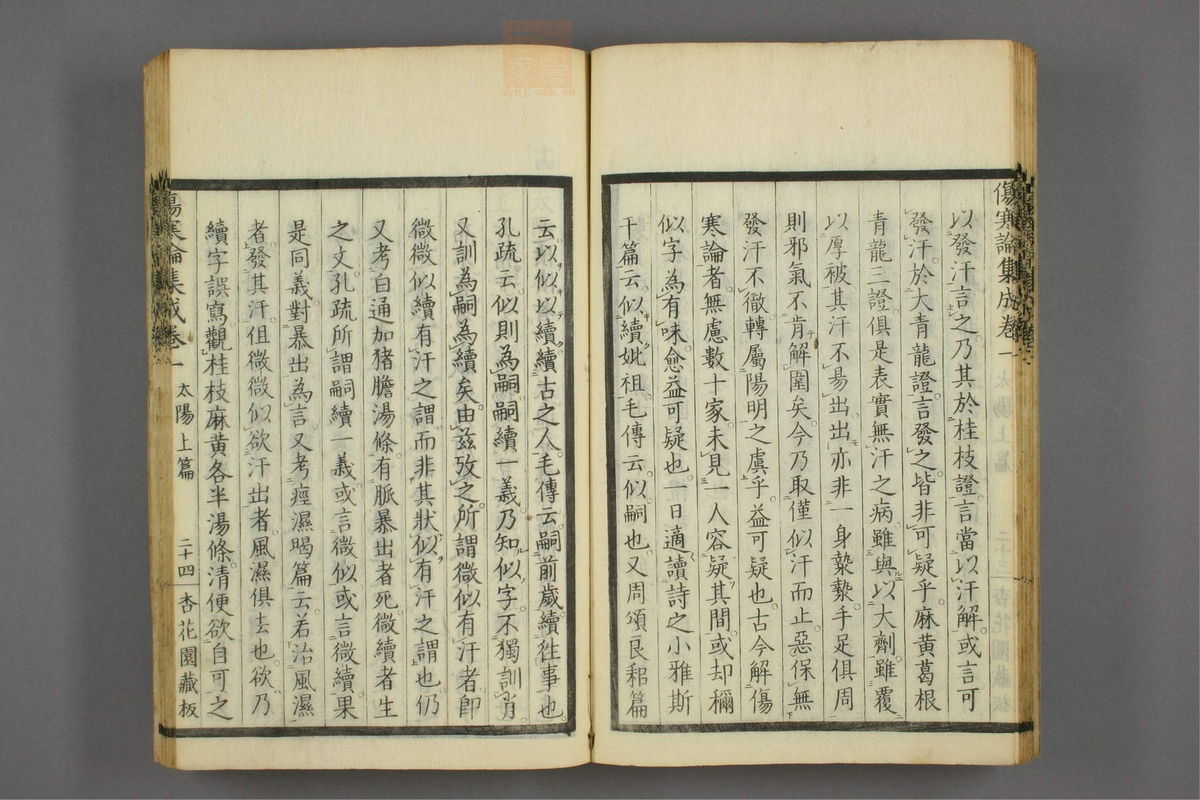 傷寒論集成卷一
以發汗言之乃其於桂枝證言當以汗解或言可
發汗於大青龍證言發之皆非可疑乎麻黃葛根
青龍三證俱是表實無汗之病雖與以大劑雖覆
以厚被其汗不易出出亦非一身漐漐手足俱周
則邪氣不肯解圍矣今乃取僅似汗而止惡保無
發汗不徹轉屬陽明之虞乎益可疑也古今解傷
寒論者無慮數十家未見一人容疑其間或却稱
似字為有味愈益可疑也一日適讀詩之小雅斯
干篇云似續妣祖毛傳云似嗣也又周頌良耜篇
云以似以續續古之人毛傳云嗣前歲續往事也
孔疏云似則為嗣嗣續一義乃知似字不獨訓肖
又訓為嗣為續矣由茲攷之所謂微似有汗者即
微微似續有汗之謂而非其狀似有汗之謂也仍
又考白通加猪膽湯條有脈暴出者死微續者生
之文孔疏所謂嗣續一義或言微似或言微續果
是同義對暴出為言又考痙濕暍篇云若治風濕
者發其汗但微微似欲汗出者風濕俱去也欲乃
續字誤寫觀桂枝麻黃各半湯條清便欲自可之
傷寒論集成卷一 太陽上篇 二十四 杏花園藏板